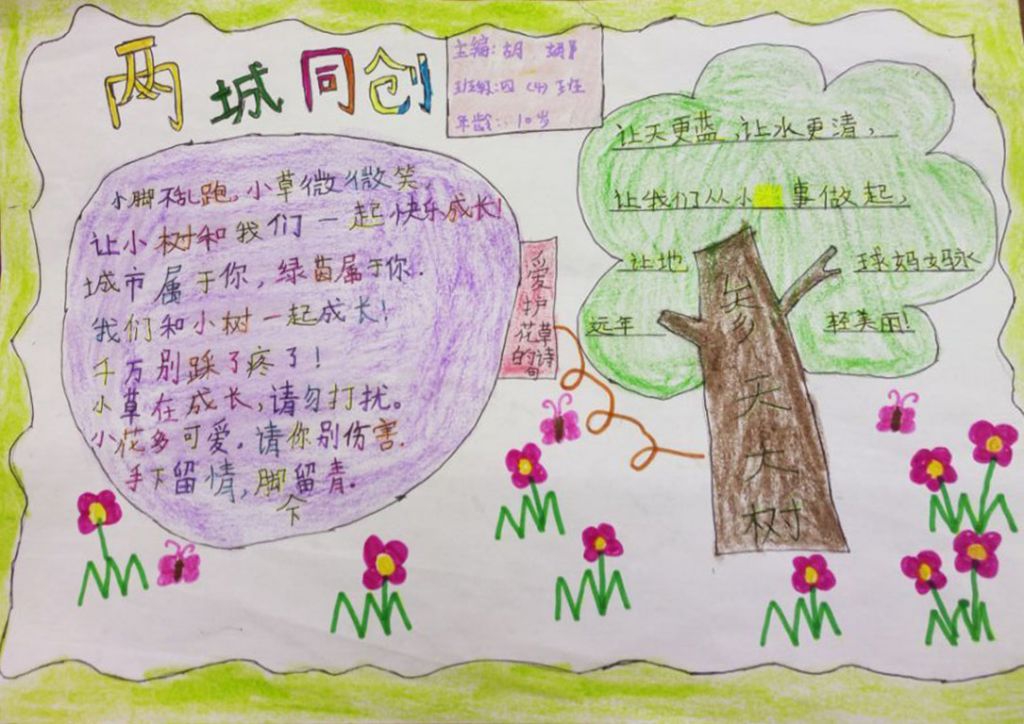 两城同创
主编:胡
班级:四(4)班
年龄:10岁
小脚不乱跑,小草微微笑,
让小树和我们一起快乐成长!
城市属于你,绿苗属于你.
我们和小树一起成长!
千万别踩了疼了!
小草在成长,请勿打扰。
小花多可爱.请你别伤害.
手下留情,脚下留青.
爱护花草的诗句
让天更蓝,让水更清,
让我们从小事做起,
让地球妈妈永
远年轻美丽!
天大树